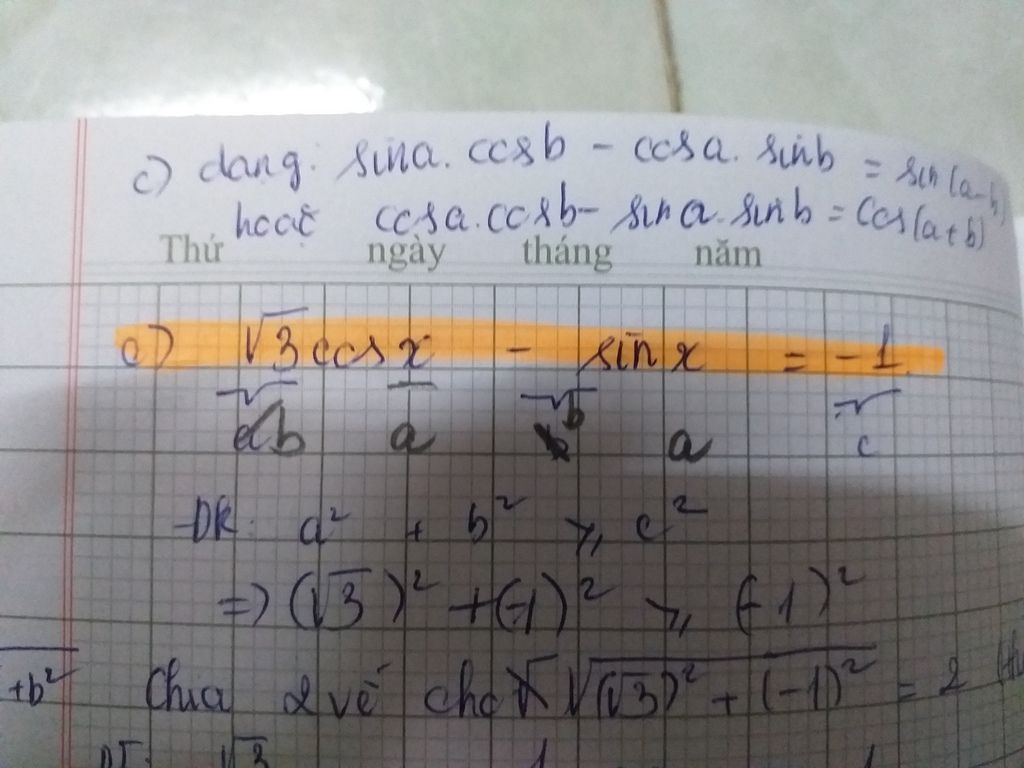 c) dạng: sina.cosb - cosa.sinb = sin(a-b)
hoặc cosa.cosb - sina.sinb = cos(a+b)
Thứ ngày tháng năm
c) √3 cos x - sin x = -1
b a b a c
ĐK: a² + b² ≥ c²
=> (√3)² + (-1)² ≥ (-1)²
+b² Chia 2 vế cho √(√3)² + (-1)² = 2
PT: √3 1 1